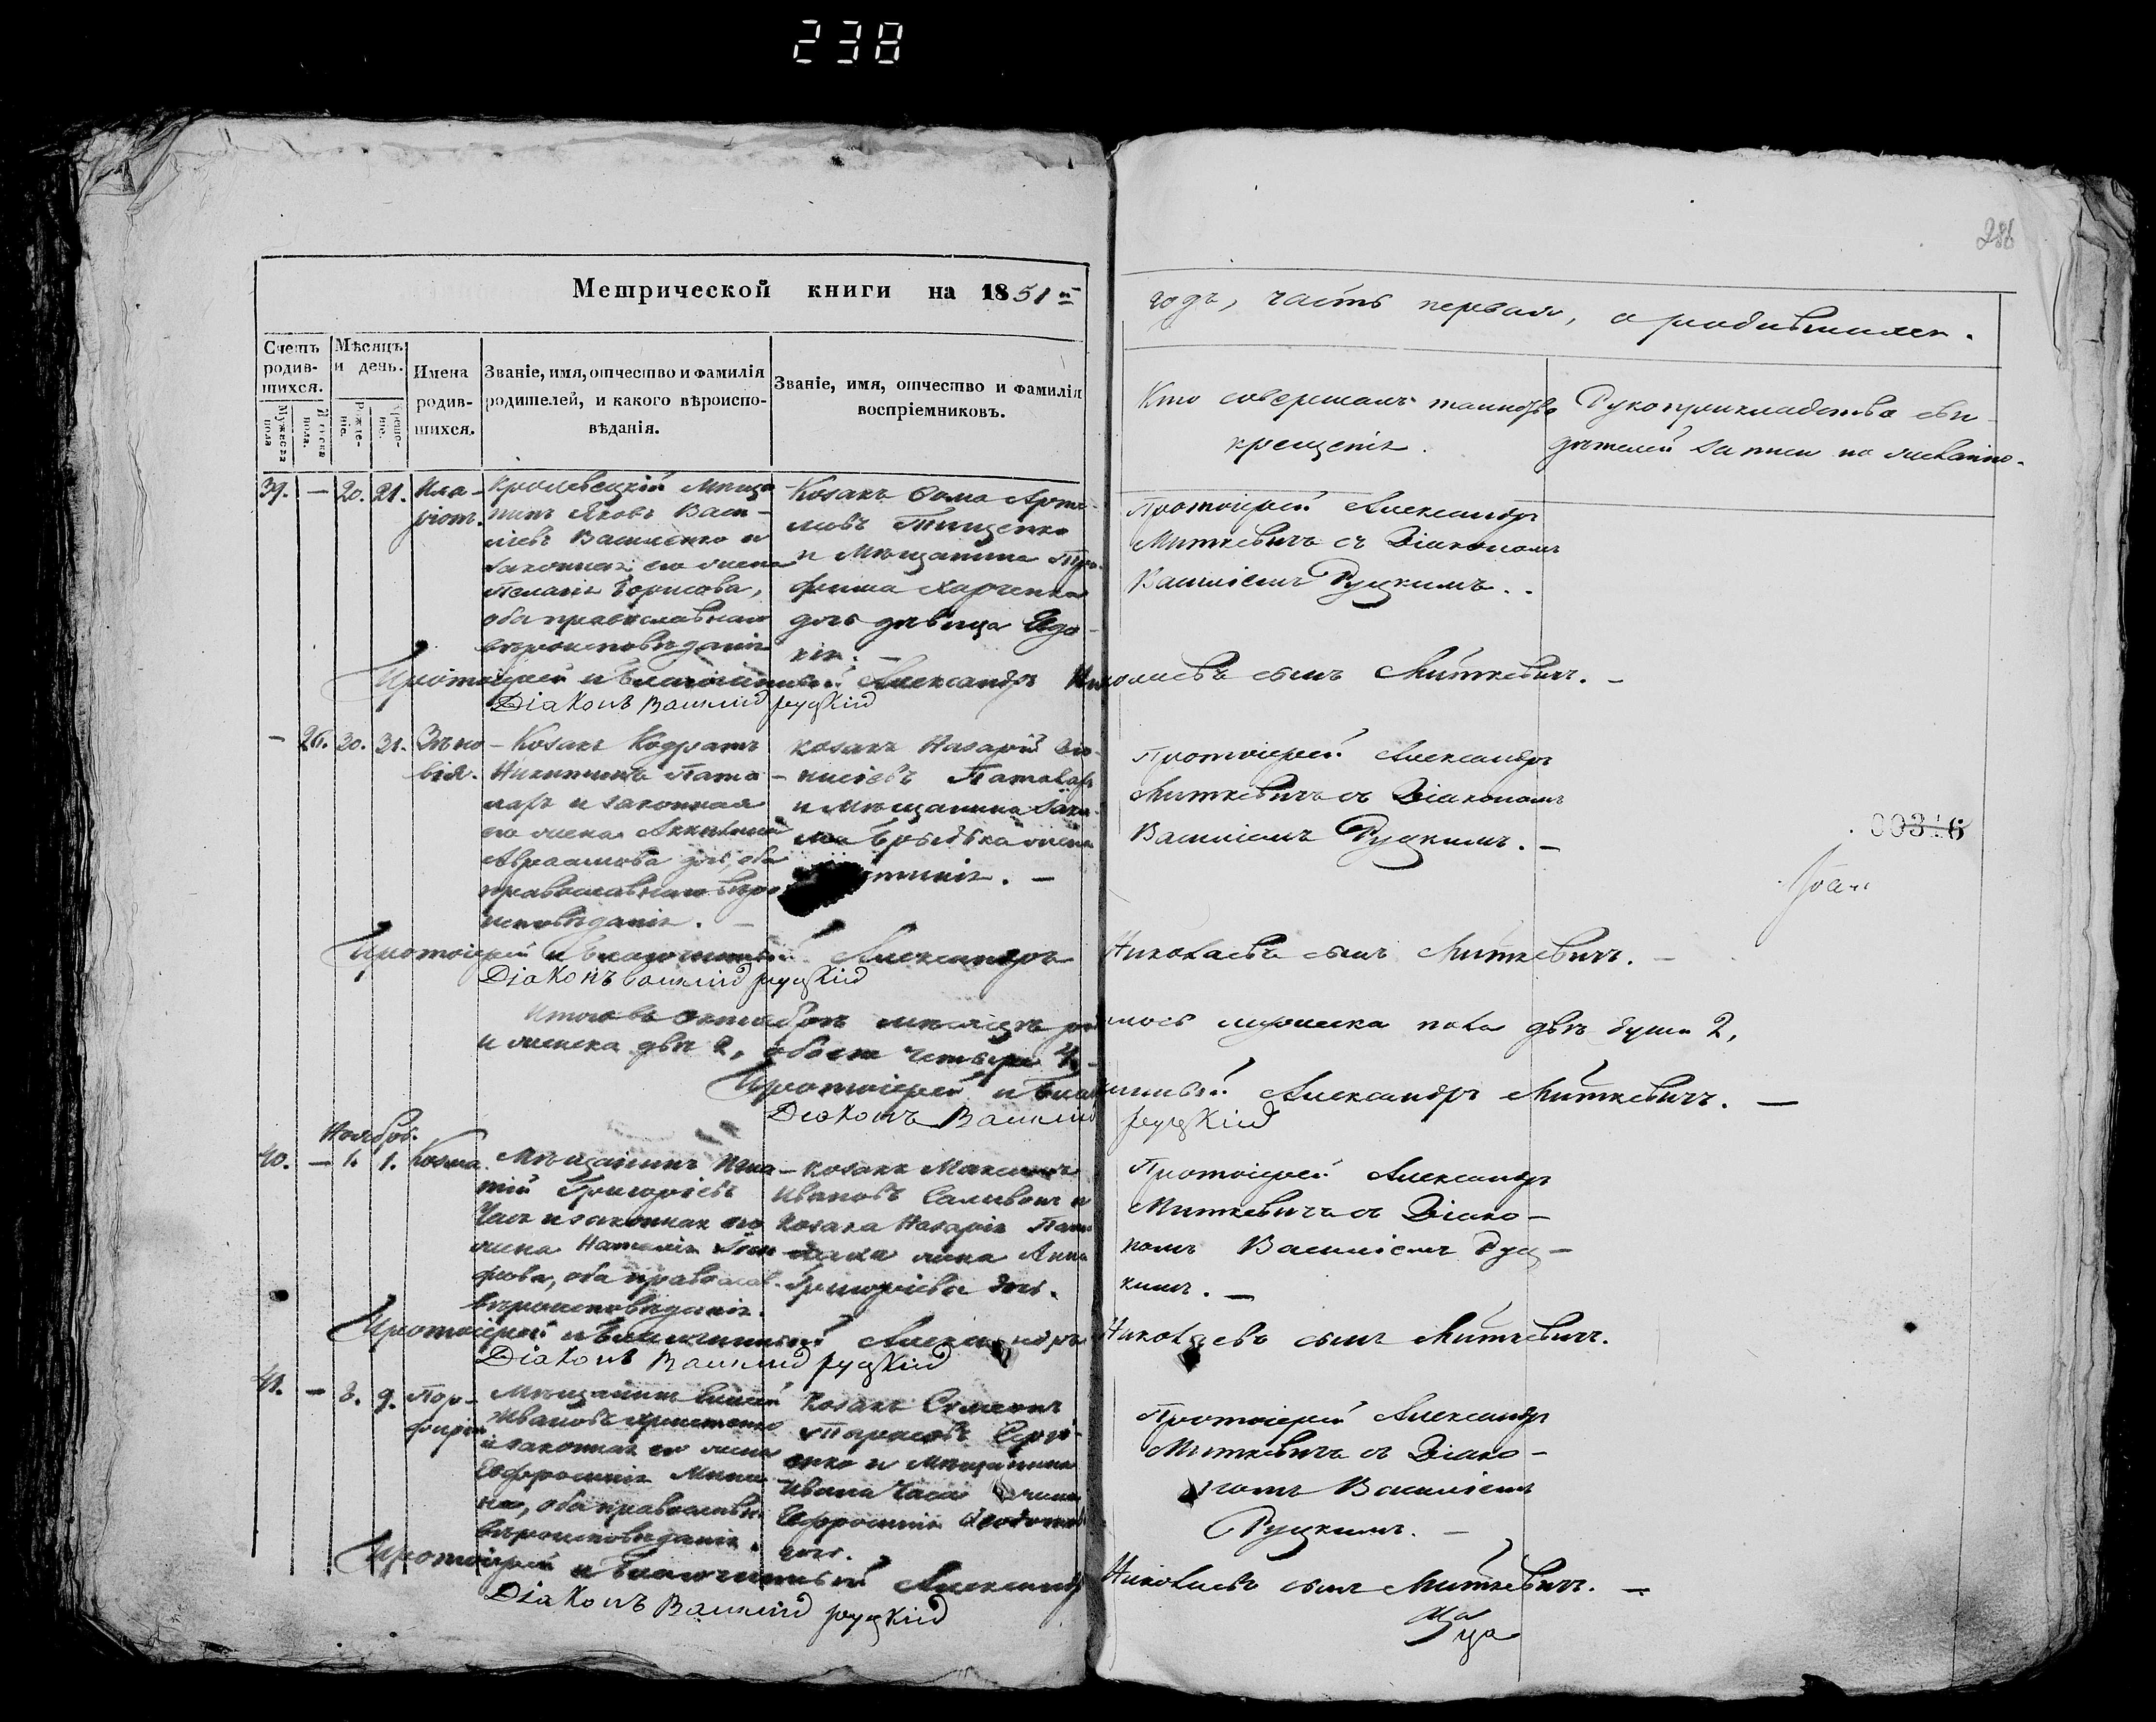 238
286
Метрической книги на 1851й
годъ, часть первая, о родившихся.
Счетъ родив-шихся.
Мужеска пола
Женска пола.
Мѣсяцъ и день.
Рожде-ніе.
Креще-ніе.
Имена родив-шихся.
Званіе, имя, отчество и фамилія родителей, и какого вѣроиспо-вѣданія.
Званіе, имя, отчество и фамилія воспріемниковъ.
Кто совершалъ таинство
крещенія.
Рукоприкладство сви-
дѣтелей записи по желанію.
39. — 20. 21. Ила-
ріонъ.
Кролевецкій мѣща
нинъ Яковъ Васи-
ліевъ Василенко и
законная его жена
Пелагія Борисова,
оба православнаго
вѣроисповѣданія
Козакъ Ѳома
Тищенко
и мѣщанина Тро-
фима Харченка
дочь дѣвица Евдо-
кія. —
Протоіерей Александръ
Миткевичъ съ Діакономъ
Василіемъ Руцкимъ.
Протоіерей и Благочинный Александръ Николаевъ сынъ Миткевичъ. —
Діаконъ Василій Руцкій
— 26. 30. 31. Зѣно
вія.
Козакъ Кодратъ
Никитинъ
и законная
его жена
Авраамова дочь, оба
православнаго вѣро
исповѣданія. —
Козакъ Назарій Діо-
нисіевъ
и мѣщанина
жена
Протоіерей Александръ
Миткевичъ съ Діакономъ
Василіемъ Руцкимъ. —
00316
Протоіерей и Благочинный Александръ Николаевъ сынъ Миткевичъ. —
Діаконъ Василій Руцкій
Итого въ октябрѣ мѣсяцѣ родилось мужеска пола двѣ души 2,
и женска двѣ 2, обоего четыре 4.
Протоіерей и Благочинный Александръ Миткевичъ. —
Діаконъ Василій Руцкій
Ноябрь.
40. — 1. 1. Козма.
Мѣщанинъ Игна-
тій Григоріевъ
Чалъ и законная его
жена Наталія
оба православ.
вѣроисповѣданія.
Козакъ Максимъ
Ивановъ и
Козака Назарія
жена Анна
Григоріева дочь.
Протоіерей Александръ
Миткевичъ съ Діако-
номъ Василіемъ Руц-
кимъ. —
Протоіерей и Благочинный Александръ Николаевъ сынъ Миткевичъ.
Діаконъ Василій Руцкій
41. — 8. 9. Пор-
фирій
Мѣщанинъ
Ивановъ
и законная его жена
Евфросинія
оба православн.
вѣроисповѣданія.
Козакъ Симеонъ
Тарасовъ
и мѣщанина
Ивана жена
Евфросинія
дочь.
Протоіерей Александръ
Миткевичъ съ Діако-
номъ Василіемъ
Руцкимъ. —
Протоіерей и Благочинный Александръ Николаевъ сынъ Миткевичъ. —
Діаконъ Василій Руцкій